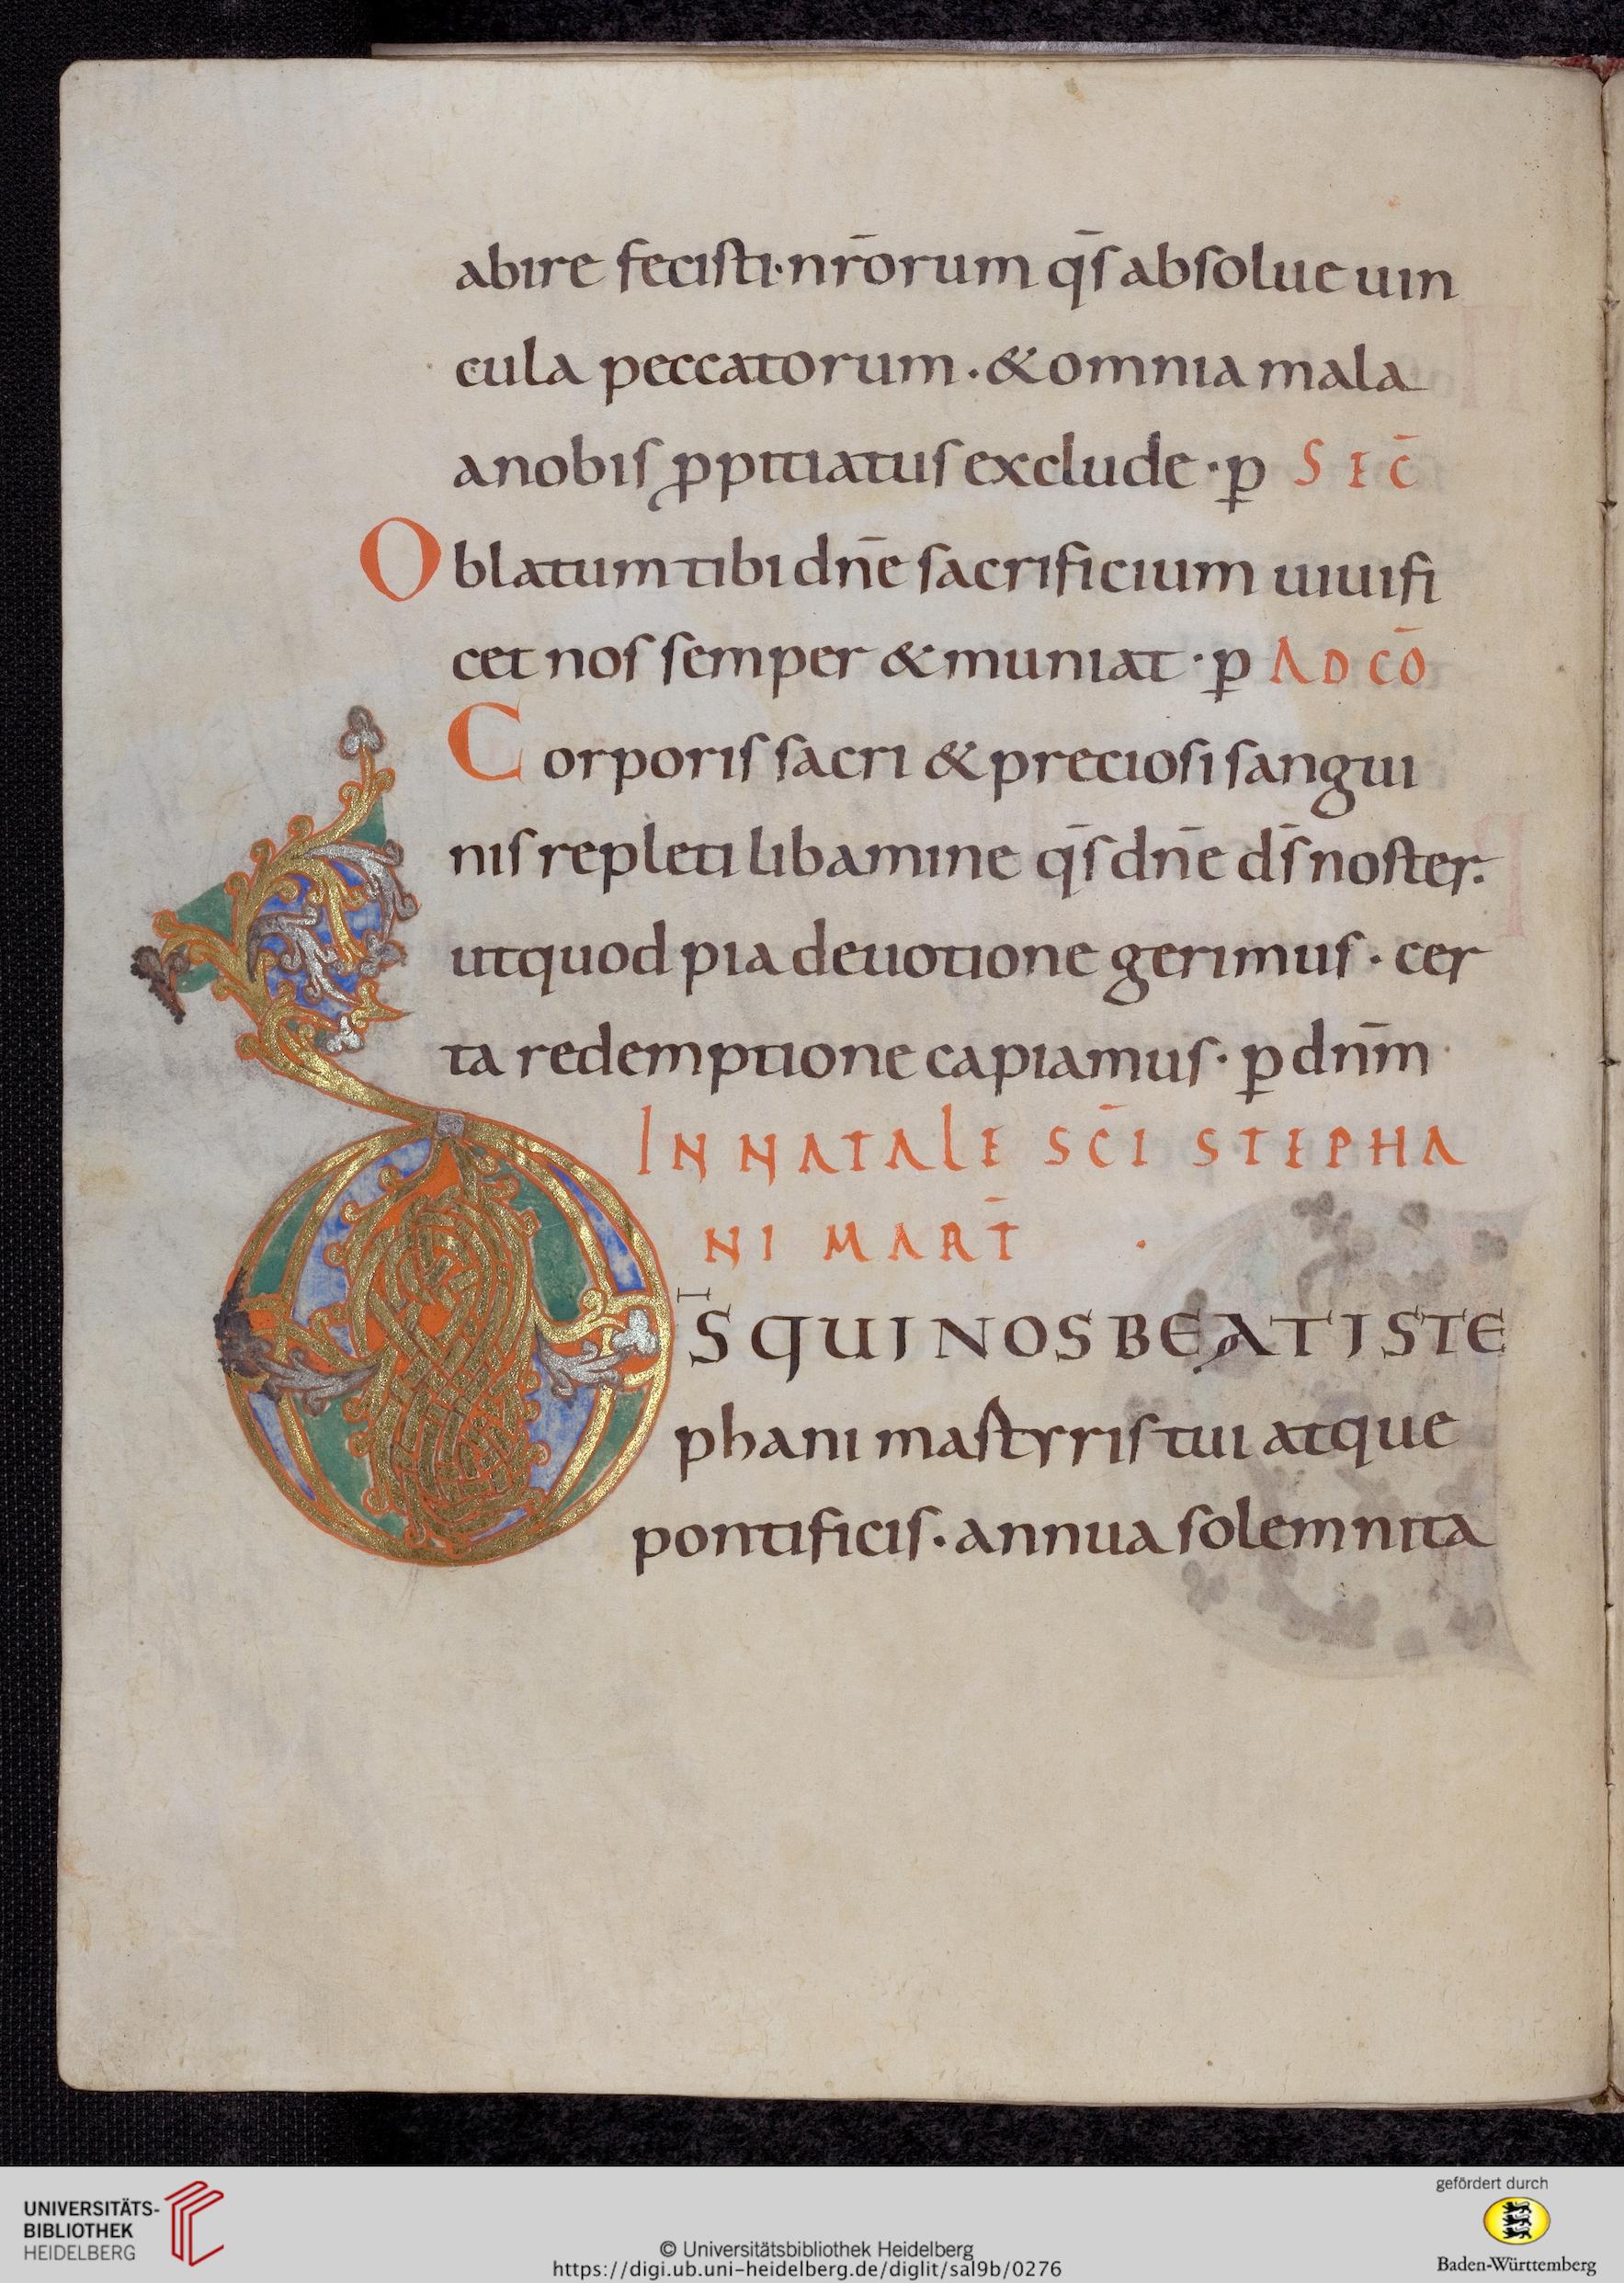 abire fecisti·nr̄orum q̄s absolue uin
cula peccatorum·&omnia mala
anobis ꝓpitiatus exclude·ꝑ SEC̄
Oblatum tibi dn̄e sacrificium uiuifi
cet nos semper & muniat·ꝑ AD CŌ
Corporis sacri & preciosi sangui
nis repleti libamine q̄s dn̄e d̄s noster.
utquod pia deuotione gerimus·cer
ta redemptione capiamus·ꝑ dnm̄
IN NATALE SC̄I STEPHA
NI MART̄
D̄S QUI NOS BEATI STE
phani martyris tui atque
pontificis·annua solemnita
UNIVERSITÄTS-
BIBLIOTHEK
HEIDELBERG
© Universitätsbibliothek Heidelberg
https://digi.ub.uni-heidelberg.de/diglit/sal9b/0276
gefördert durch
Baden-Württemberg